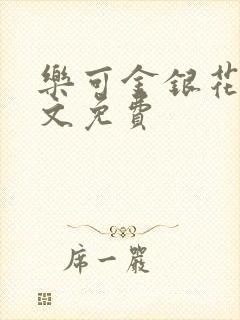 樂可金銀花
文免費
席一嚴